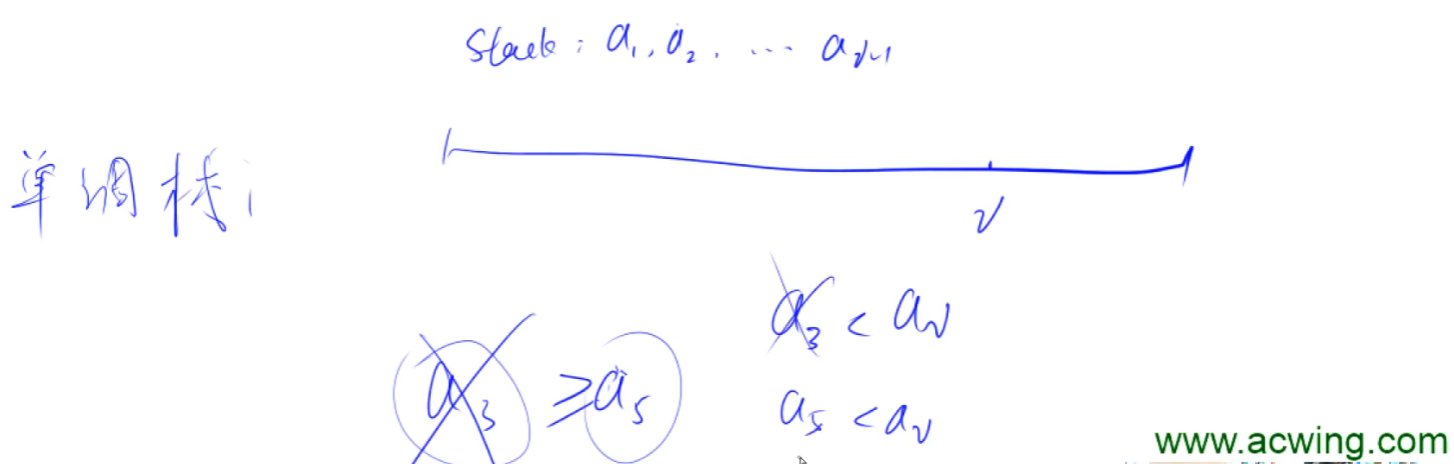 Stack: a₁, a₂, ... aᵢ₋₁
单调栈:
i
a₃ < aᵢ
a₃ ≥ a₅
a₅ < aᵢ
www.acwing.com